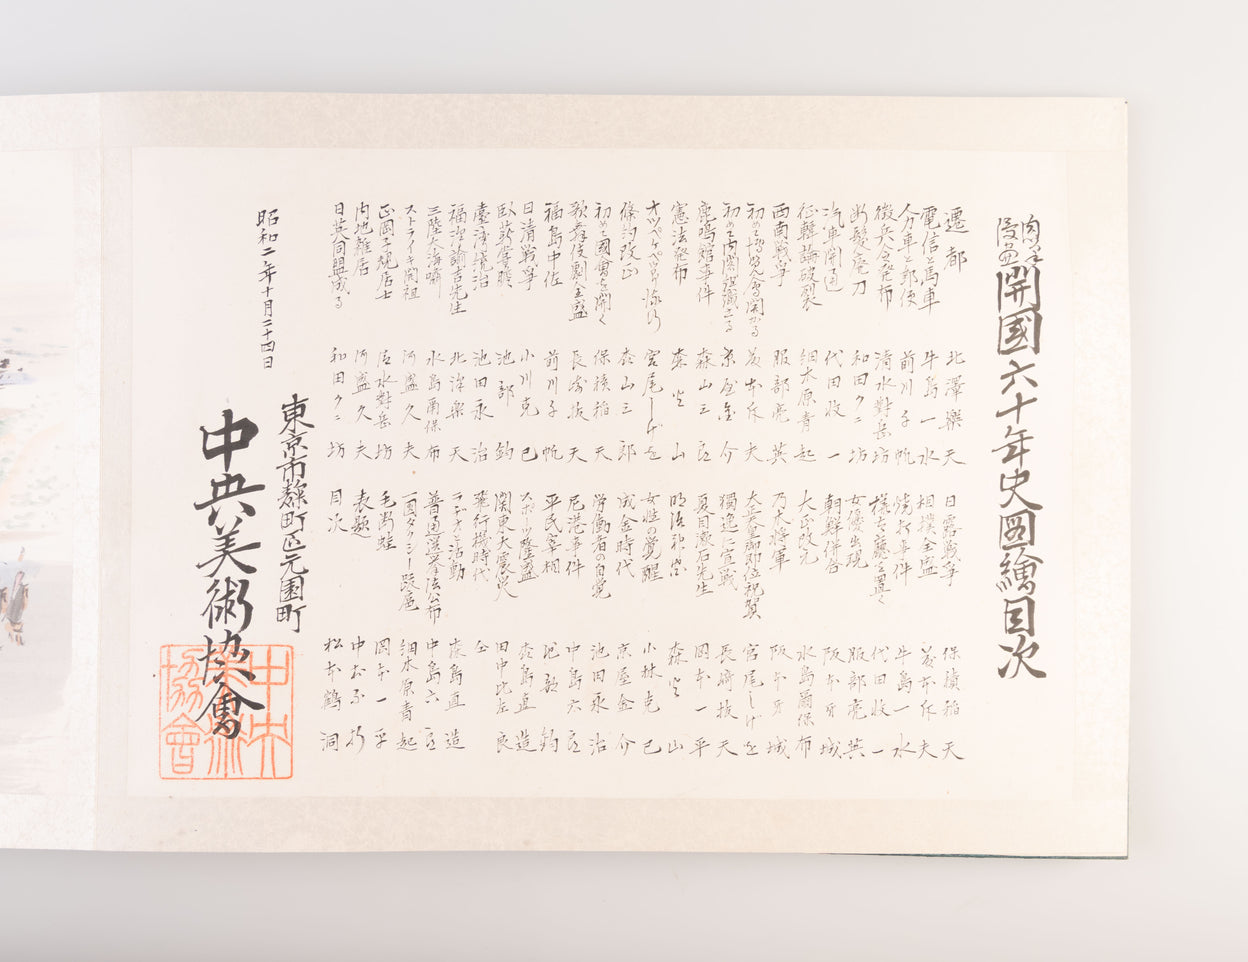 肉筆漫画 開國六十年史圖繪目次
遷都 北澤樂天
電信と馬車 牛島一水
人力車と郵便 前川千帆
徴兵令発布 清水對岳坊
断髪廃刀 和田クニ坊
汽車開通 代田收一
征韓論破裂 細木原青起
西南戦争 服部亮英
初めて博覧会を開かる 本斥夫
初めて内閣組織さる 京屋金介
鹿鳴館事件 森山三
憲法発布 森火山
オッペケペー節流行 宮尾しげを
條約改正 山三郎
初めて國會を開く 保積稲天
歌舞伎劇全盛 長崎抜天
福島中佐 前川千帆
日清戦争 小川克己
臥薪嘗胆 池部鈞
臺湾統治 池田永治
福澤諭吉先生 北澤樂天
三陸大海嘯 水島爾保布
ストライキ開祖 河盛久夫
正岡子規居士 清水對岳坊
内地雜居 河盛久夫
日英同盟成る 和田クニ坊
日露戦争 保積稲天
相撲全盛 本斥夫
焼打事件 牛島一水
樺太廳を置く 代田收一
女優出現 服部亮英
朝鮮併合 阪本牙城
大正改元 水島爾保布
乃木将軍 阪本牙城
大正天皇御即位祝賀 宮尾しげを
獨逸に宣戦 長崎抜天
夏目漱石先生 岡本一平
明治神宮 森火山
女性の覚醒 小林克己
成金時代 京屋金介
労働者の自覚 池田永治
尼港事件 中島六郎
平民宰相 池部鈞
スポーツ隆盛 島直造
関東大震災 田中比左良
飛行機時代
ラヂオの活動 島直造
普通選挙法公布 中島六郎
一圓タクシー跋扈 細木原青起
毛断蛙 岡本一平
表題 中村不折
目次 松本鶴洞
昭和二年十月二十四日
東京市麹町区元園町
中央美術協會
中央美術協會